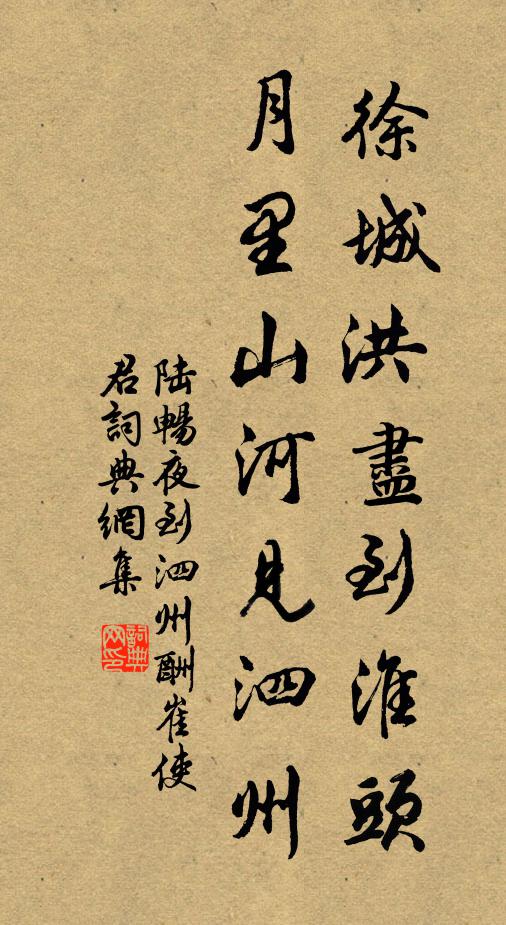 徐城洪盡到淮頭
月里山河見泗州
陆暢夜到泗州酬崔使
君詞典網集
詞典
网印